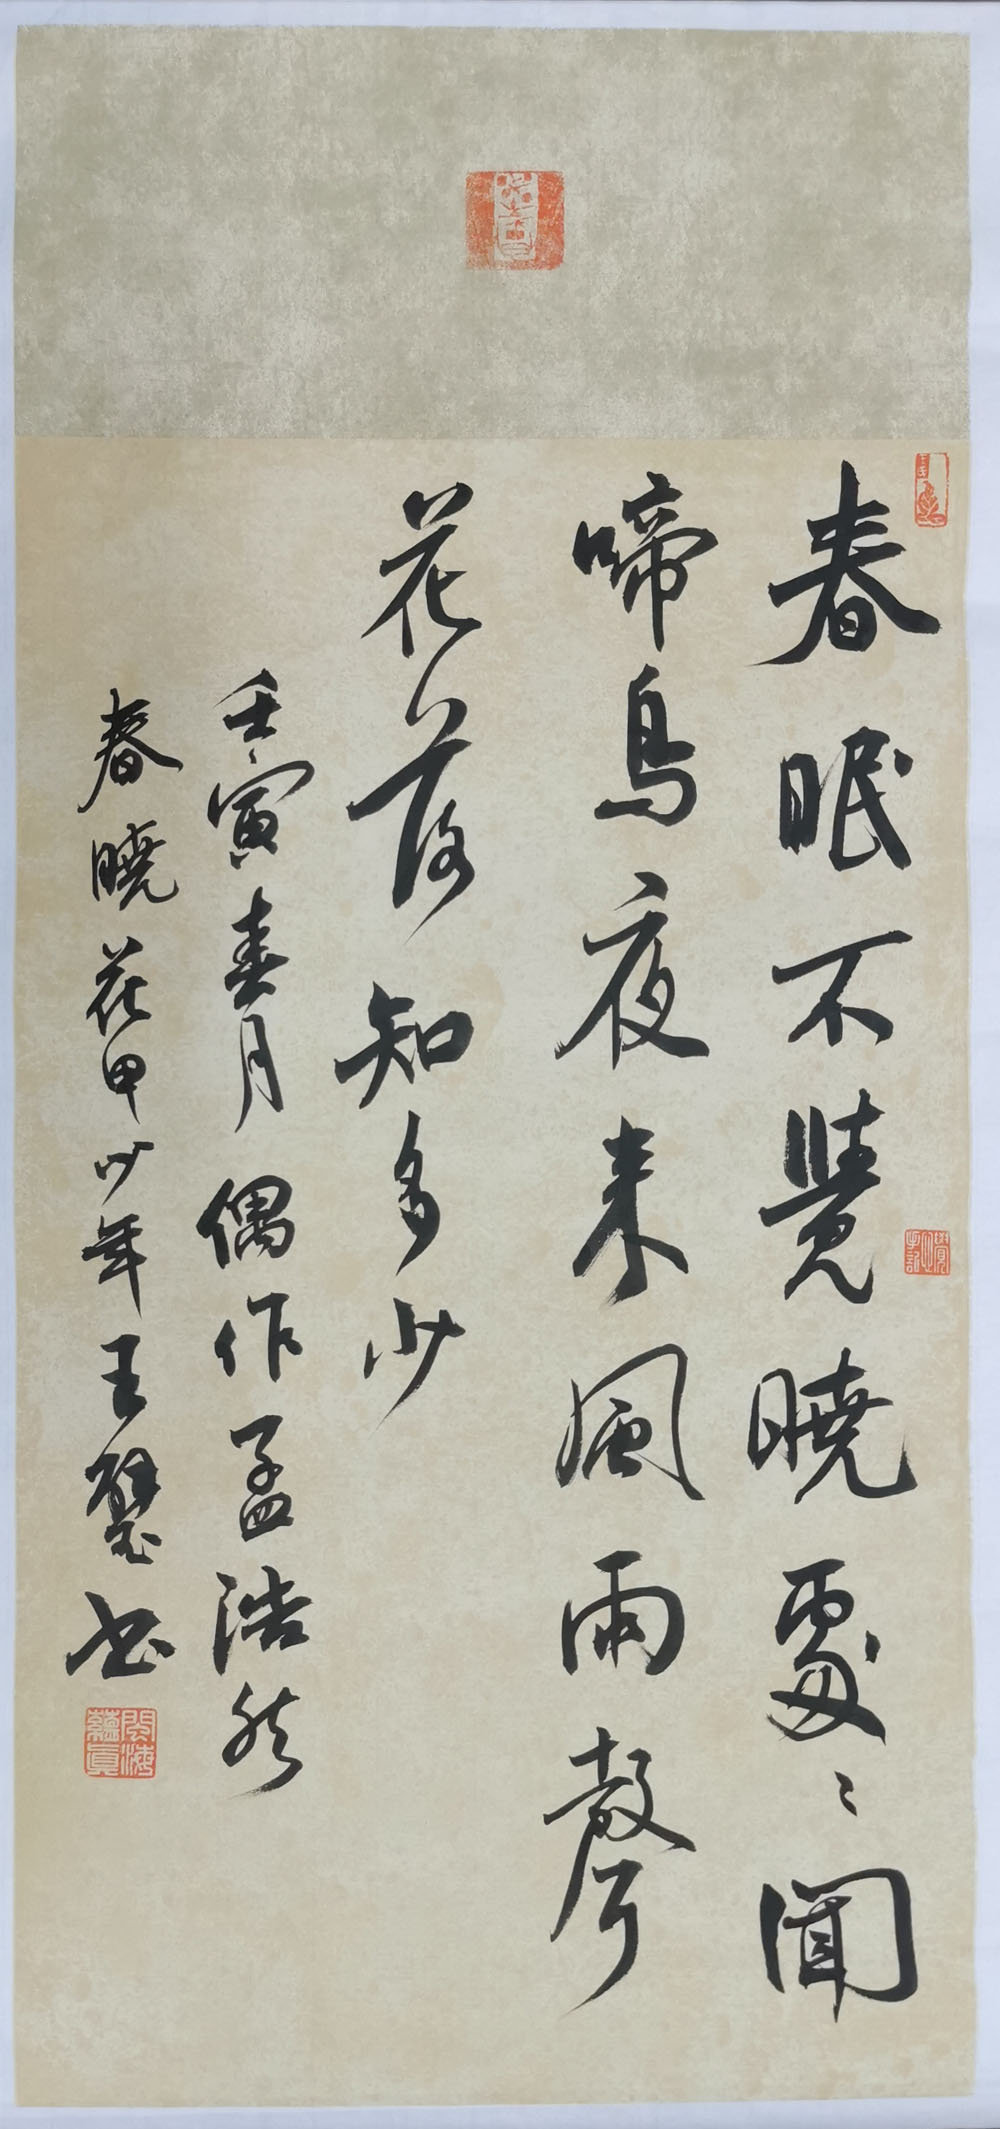 春眠不覺曉處〻聞
啼鳥夜来風雨聲
花落知多少
壬寅春月偶作孟浩然
春曉花甲少年王璧书
閩海
蘊真